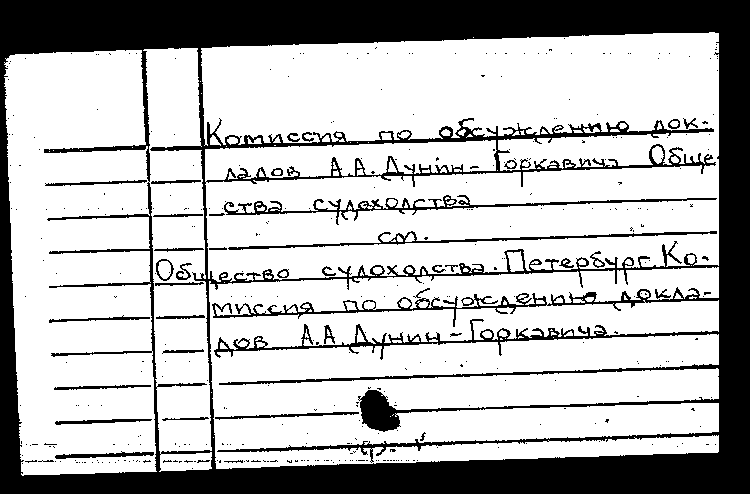 Комиссия по обсуждению док-
ладов А.А. Дунин-Горкавича Обще-
ства судоходства
см.
Общество судоходства. Петербург. Ко-
миссия по обсуждению докла-
дов А.А. Дунин-Горкавича.